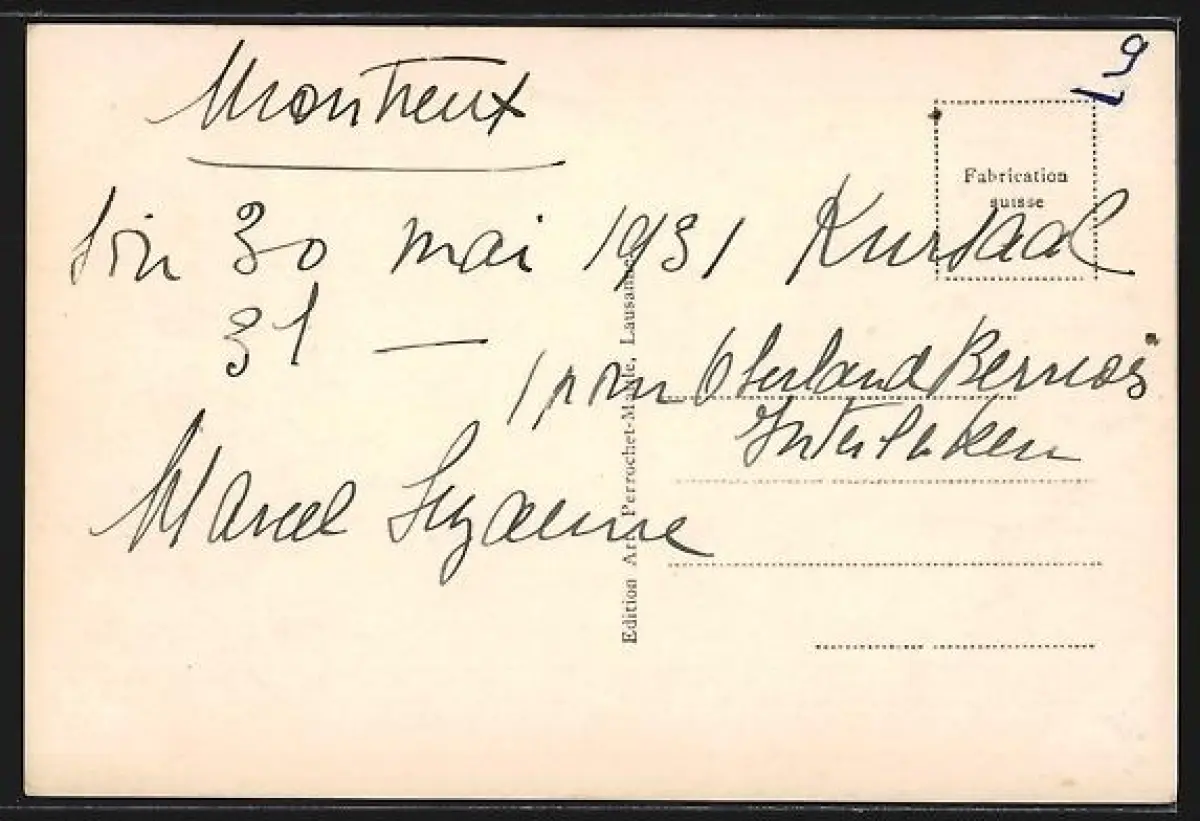 Montreux
9
Fabrication
suisse
30 mai 1931 Kursaal
31 —
Oberland Bernois
Interlaken
Marcel Suzanne
Edition Art. Perrochet-Matile, Lausanne